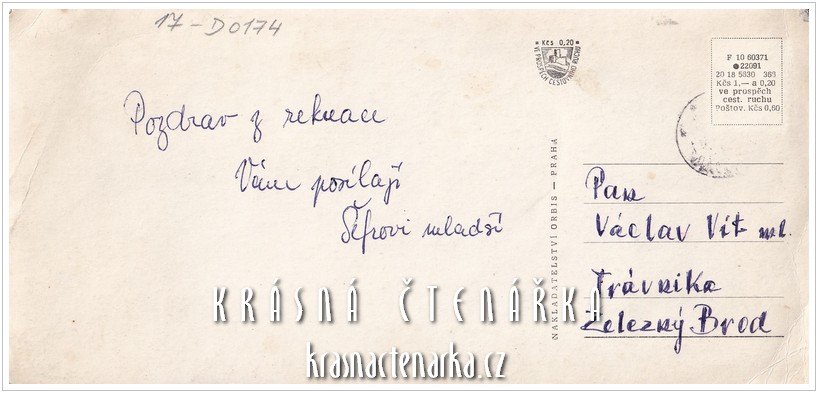 17-D0174
Kčs 0,20
VE PROSPĚCH CESTOVNÍHO RUCHU
F 10 60371
22091
20 18 5830 363
Kčs 1,— a 0,20
ve prospěch
cest. ruchu
Poštov. Kčs 0,60
Pozdrav z rekreace
Vám posílají
Šéfrovi mladší
NAKLADATELSTVÍ ORBIS — PRAHA
Pan
Václav Vít ml.
Trávníka
Železný Brod
KRÁSNÁ ČTENÁŘKA
krasnactenarka.cz